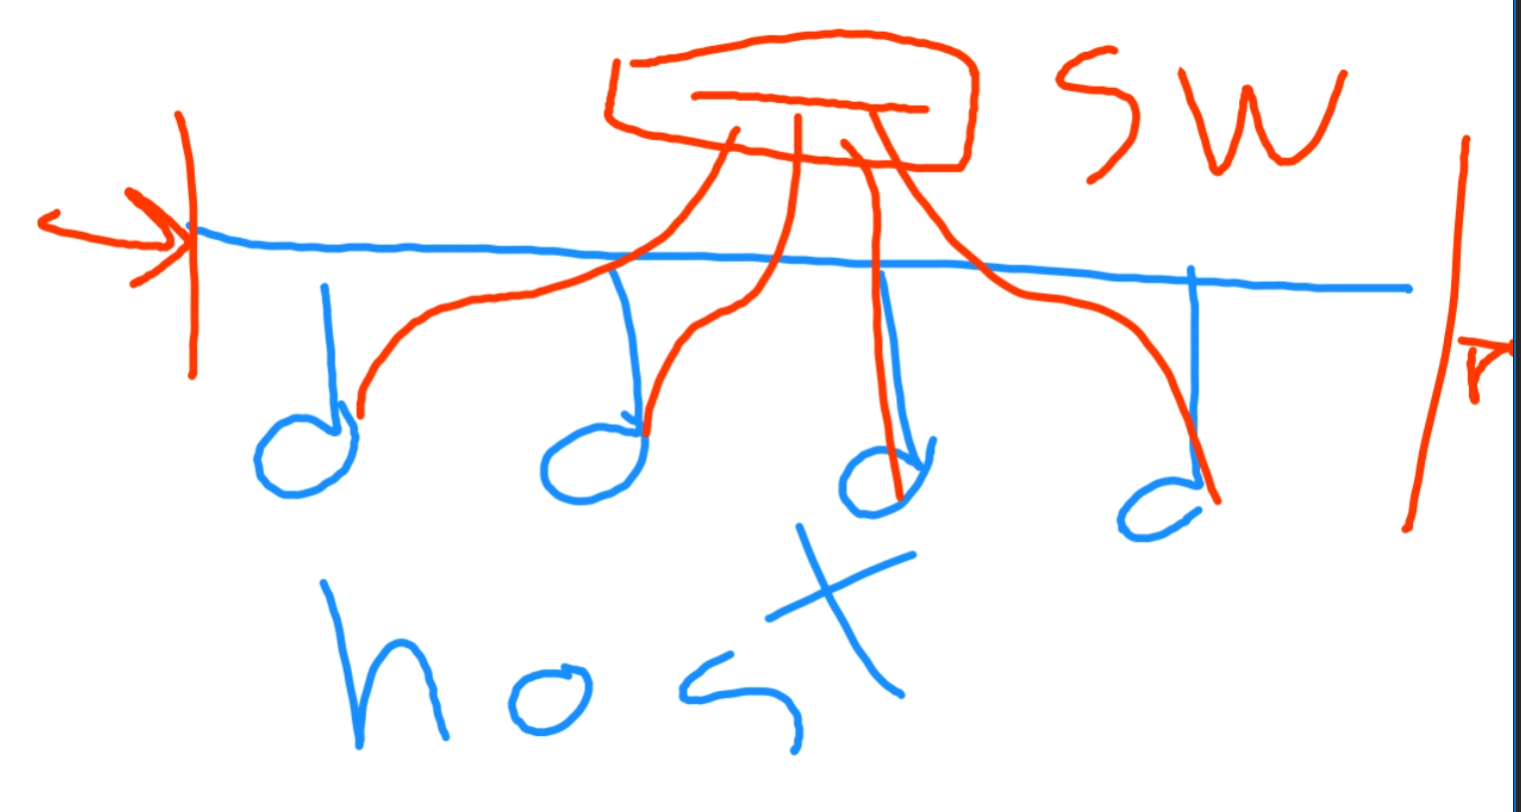 SW
host